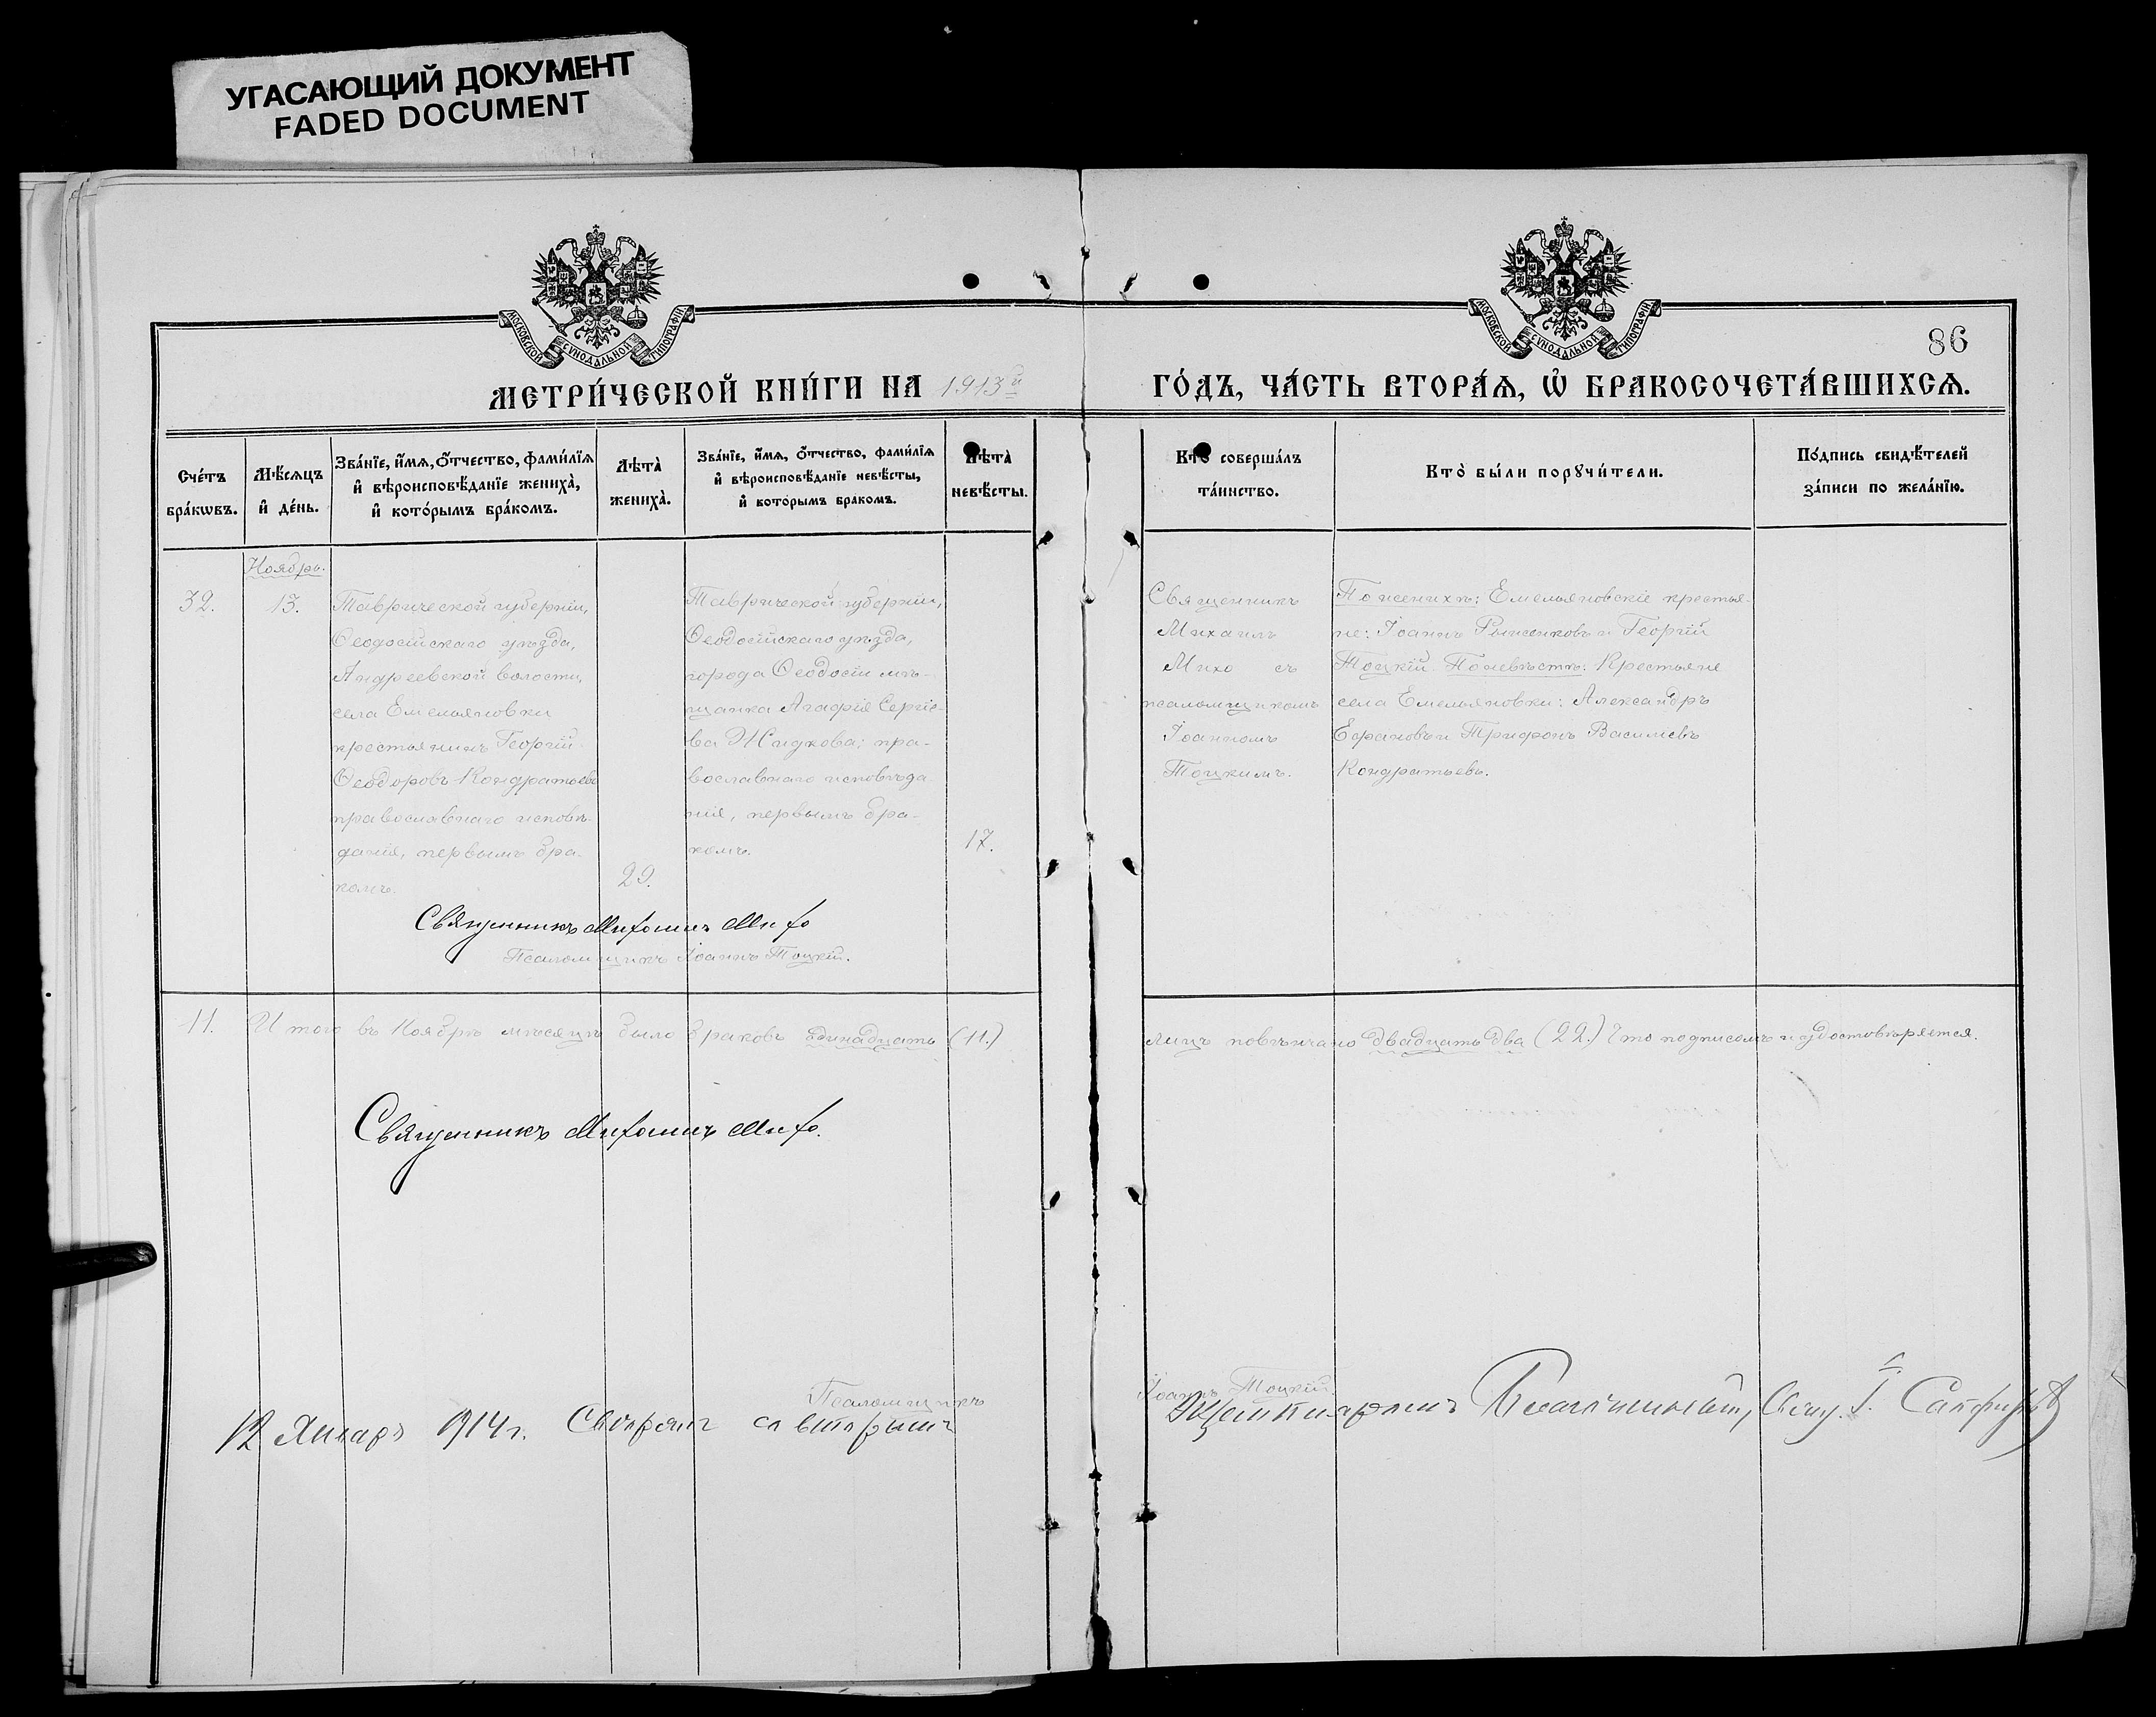 УГАСАЮЩИЙ ДОКУМЕНТ
FADED DOCUMENT
МОСКОВСКОЙ СѴНОДАЛЬНОЙ ТИПОГРАФІИ
МОСКОВСКОЙ СѴНОДАЛЬНОЙ ТИПОГРАФІИ
86
МЕТРИ́ЧЕСКОЙ КНИ́ГИ НА 1913й
ГО́ДЪ, ЧА́СТЬ ВТОРА́Ѧ, Ѽ БРАКОСОЧЕТА́ВШИХСѦ.
Сче́тъ
бра́кωвъ.
Мѣ́сѧцъ
и҆ де́нь.
Зва́нїе, и҆́мѧ, ѻ҆́тчество, фами́лїѧ
и҆ вѣроисповѣ́данїе жениха̀,
и҆ кото́рымъ бра́комъ.
Лѣта̀
жениха̀.
Зва́нїе, и҆́мѧ, ѻ҆́тчество, фами́лїѧ
и҆ вѣроисповѣ́данїе невѣ́сты,
и҆ кото́рымъ бракомъ.
Лѣта̀
невѣ́сты.
Кто̀ соверша́лъ
та́инство.
Кто̀ бы́ли порꙋчи́тели.
По́дпись свидѣ́телей
за́писи по жела́нїю.
Ноябрь.
32.
13.
Таврической губерніи,
Ѳеодосійскаго уѣзда,
Андреевской волости,
села Емельяновки
крестьянинъ Георгій
Ѳеодоровъ Кондратьевъ
православнаго исповѣ-
данія, первымъ бра-
комъ.
29.
Таврической губерніи,
Ѳеодосійскаго уѣзда,
города Ѳеодосіи мѣ-
щанка Агафія Сергіе-
ва Жидкова; пра-
вославнаго исповѣда
нія, первымъ бра-
комъ.
17.
Священникъ
Михаилъ
Михо съ
псаломщикомъ
Іоанномъ
Тоцкимъ.
По женихѣ: Емельяновскіе крестья-
не: Іоаннъ Рыженковъ и Георгій
Тоцкій По невѣстѣ: Крестьяне
села Емельяновки: Александръ
и Трифонъ Василіевъ
Кондратьевъ.
Священникъ Михаилъ Михо
Псаломщикъ Іоаннъ Тоцкій.
11. Итого въ Ноябрѣ мѣсяцѣ было браковъ одинадцать (11.)
лицъ повѣнчано двадцать два (22.) Что подписомъ и удостовѣряется.
Священникъ Михаилъ Михо.
Псаломщикъ
Іоаннъ Тоцкій.
12 Январь 1914 г. Свѣрялъ со вторымъ
экземпляромъ Благочинный, Свящ. I. Сапфировъ